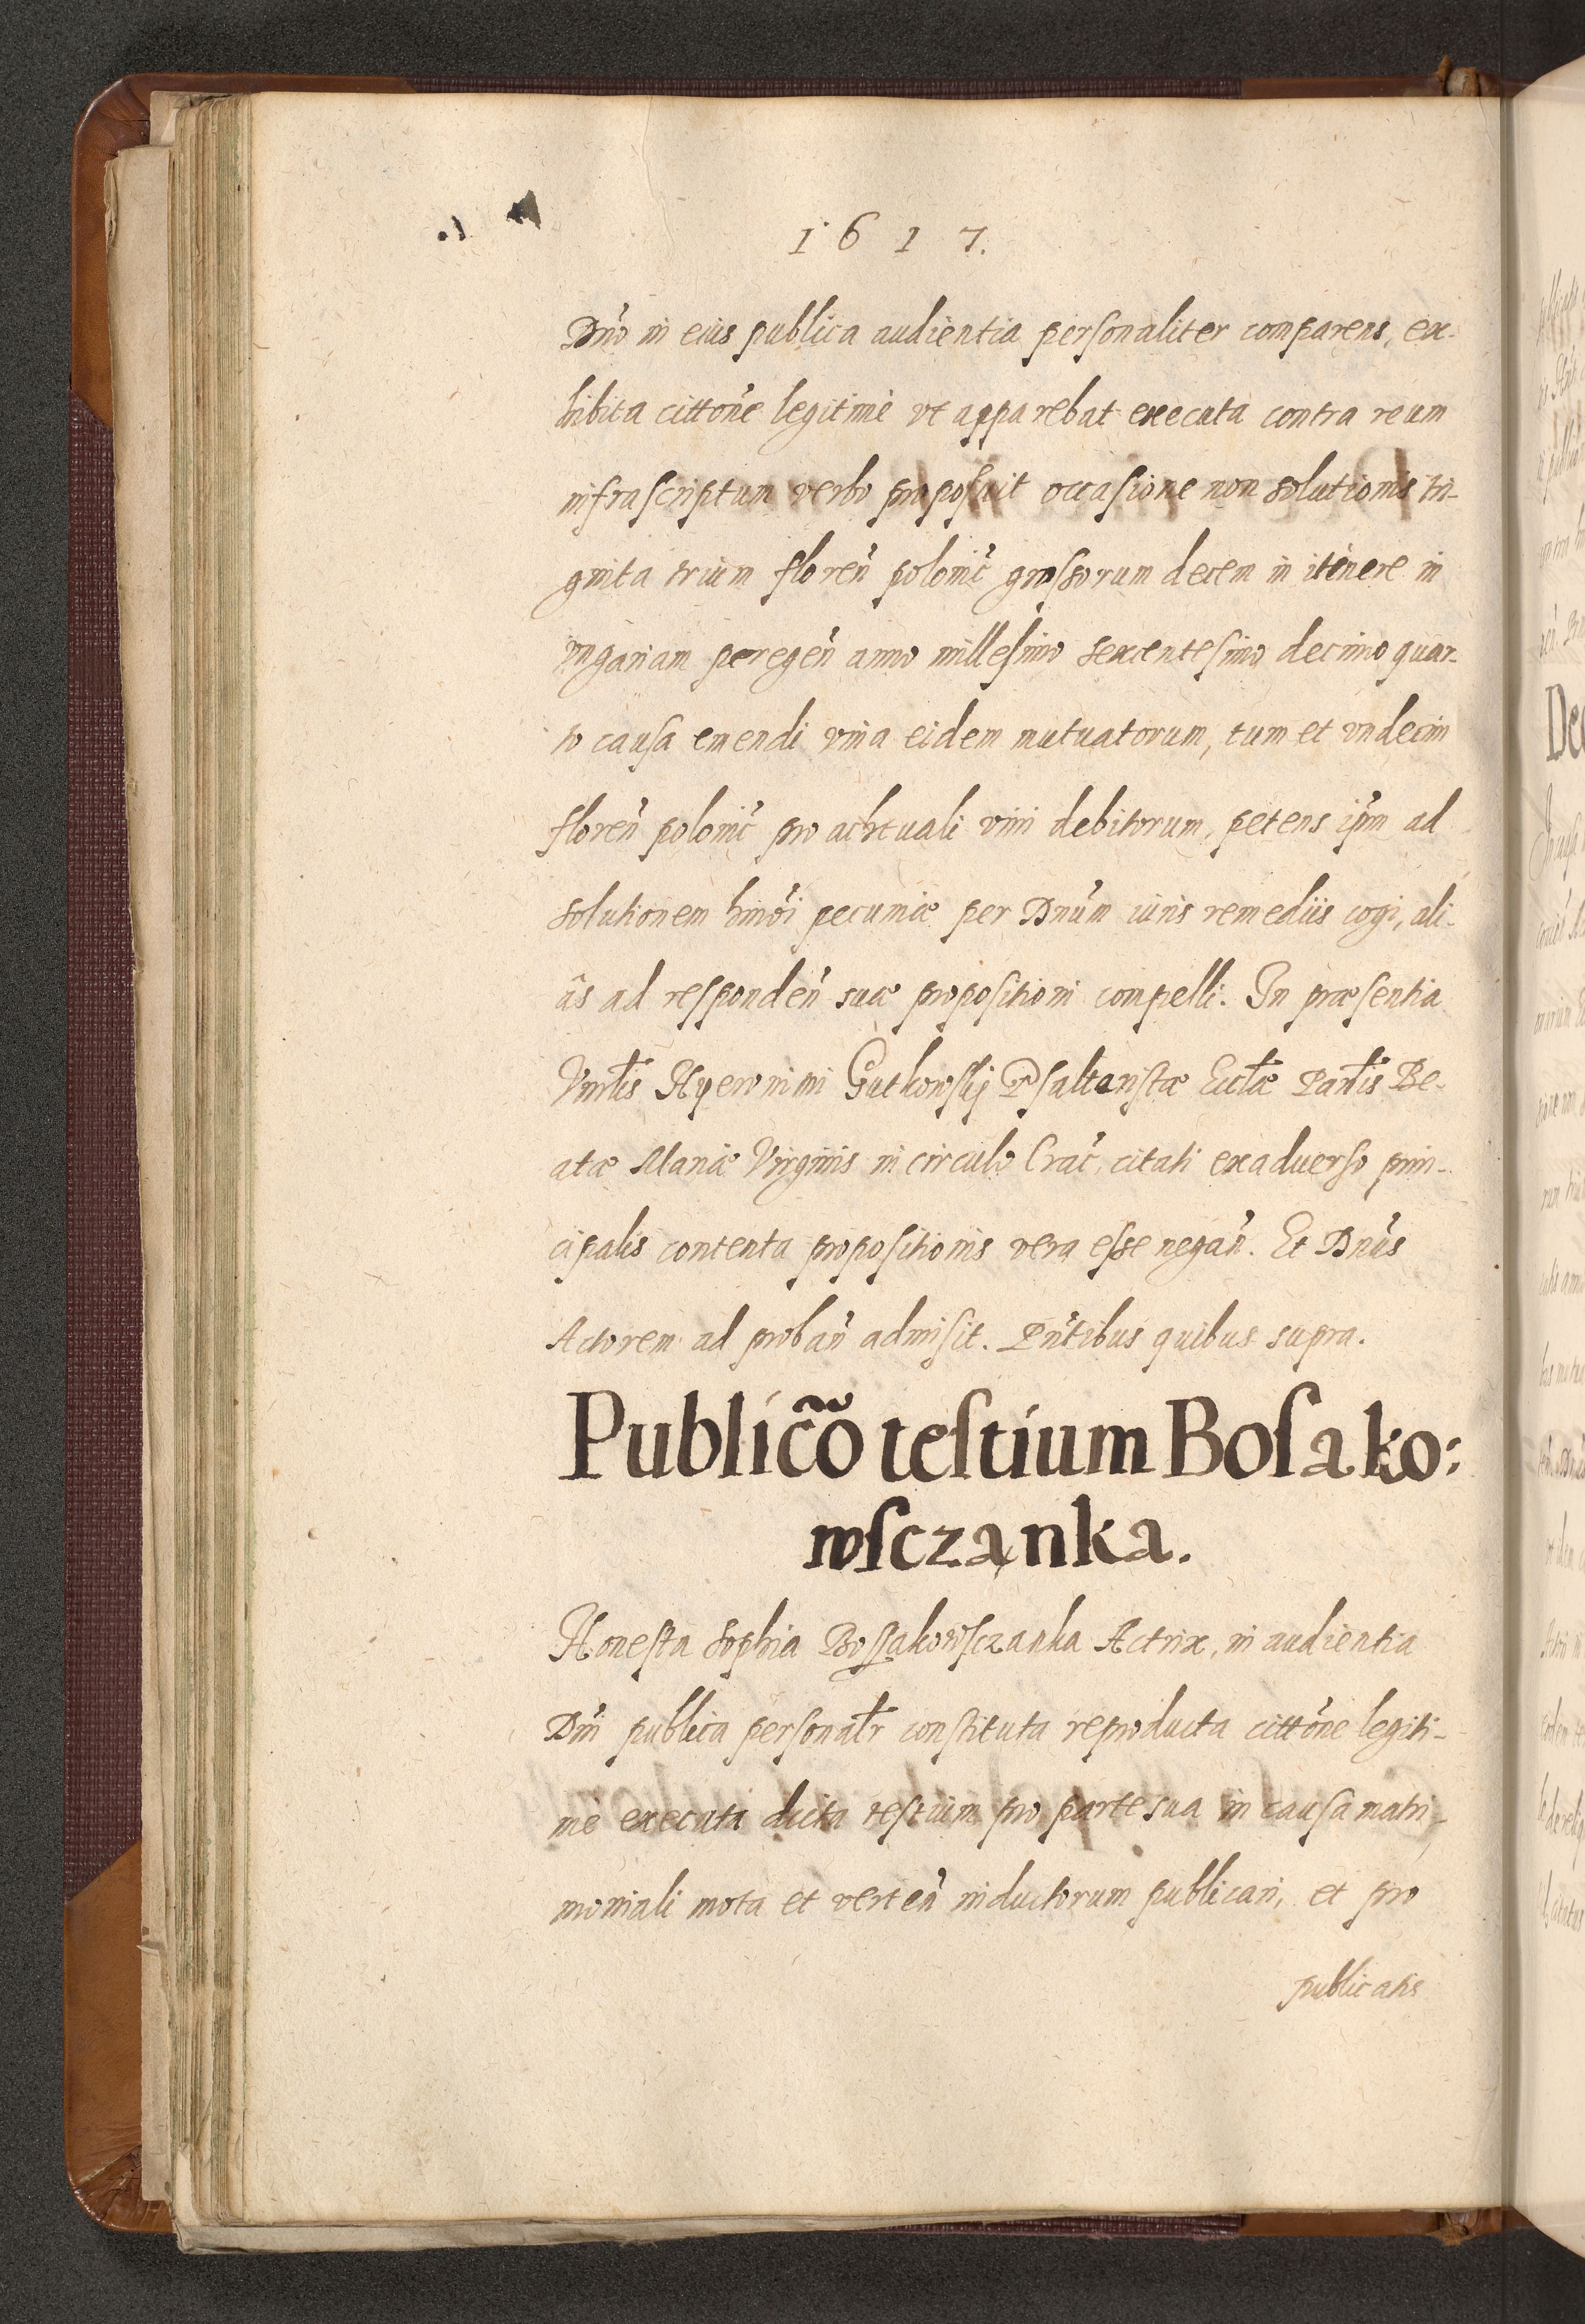 1617.
Dno in eius publica audientia personaliter comparens, ex-
hibita cittone legitimè vt apparebat executa contra reum
infrascriptum verbo proposuit occasione non solutionis tri-
ginta trium floren polonic grossorum decem in itinere in
vngariam peregen anno millesimo sexcentesimo decimo quar-
to causa emendi vina eidem mutuatorum, tum et vndecim
floren polonic pro achtuali vini debitorum, petens ipm ad
solutionem hmoi pecuniæ per Dnum iuris remediis cogi, ali-
âs ad responden suæ propositioni compelli. In præsentia
Vnrlis Hyeronimi Gutkowskij Psalteristæ Ecclæ Parlis Be-
atæ Mariæ Virginis in circulo Crac, citati ex aduerso prin-
cipalis contenta propositionis vera esse negan. Et Dnus
Actorem ad proban admisit. Pntibus quibus supra.
Publicõ testium Bosako:
wsczanka.
Honesta Sophia Bossakowsczanka Actrix, in audientia
Dni publica personalr constituta reproducta cittone legiti-
mè executa dicta testium pro parte sua in causa matri-
moniali mota et verten inductorum publicari, et pro
publicatis